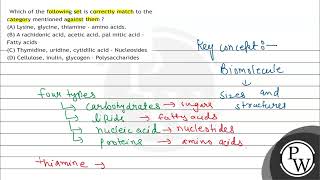 Which of the following set is correctly match to the
category mentioned against them ?
(A) Lysine, glycine, thiamine - amino acids.
(B) A rachidonic acid, acetic acid, pal mitic acid -
Fatty acids
(C) Thymidine, uridine, cytidilic acid - Nucleosides
(D) Cellulose, inulin, glycogen - Polysaccharides
Key concept:-
Biomolecule
sizes and
structures
four types
carbohydrates → sugars
lipids → fatty acids
nucleic acid → nucleotides
proteins → amino acids
thiamine →
PW